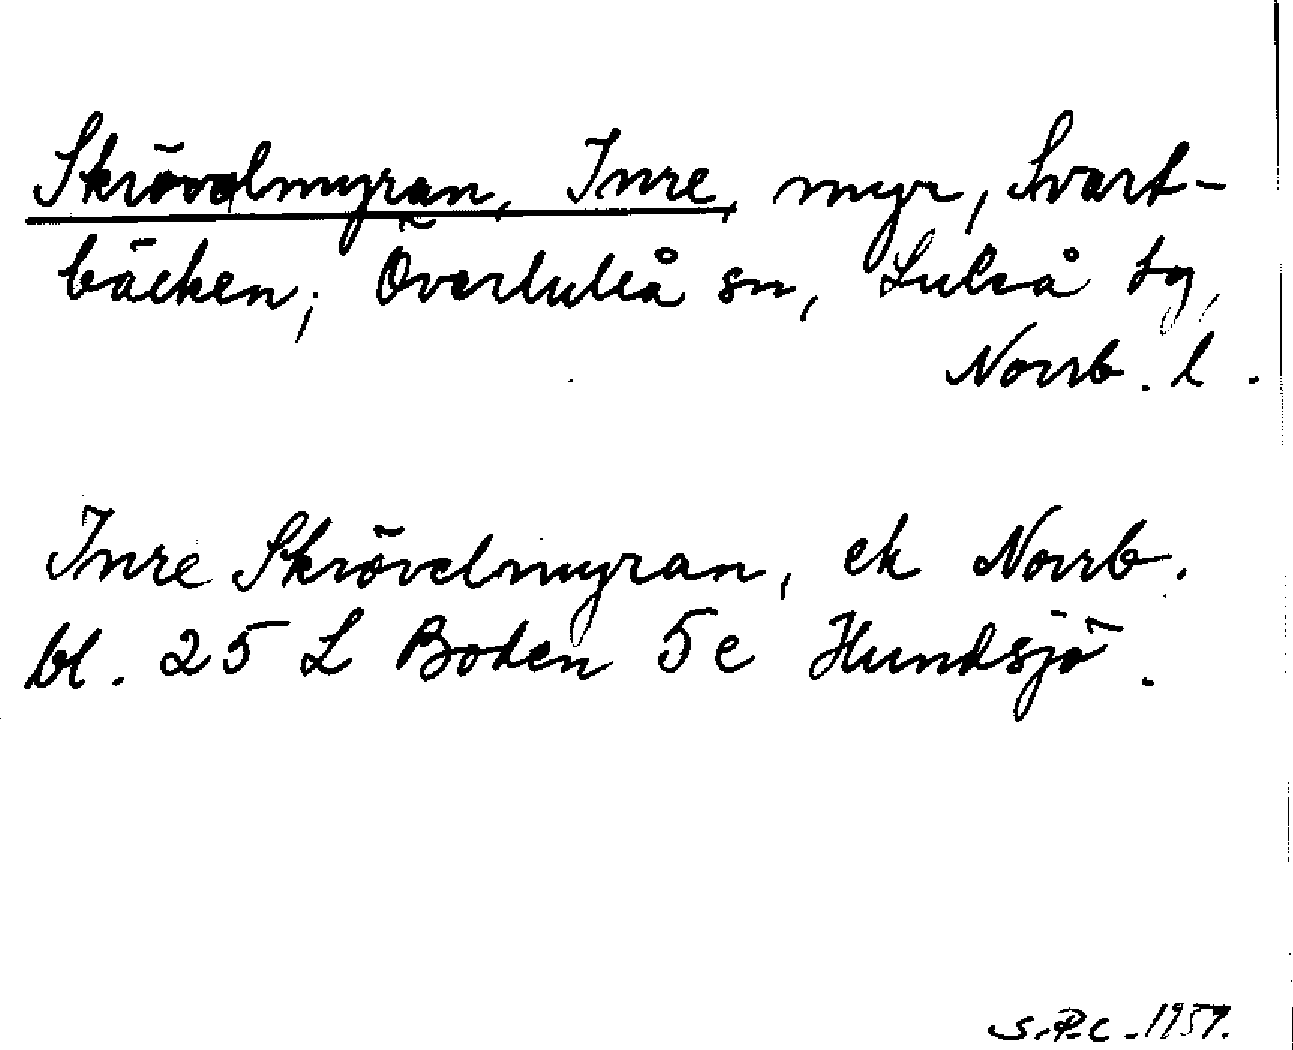 Skrövelmyran, Inre, myr, Svart-
bäcken, Överluleå sn, Luleå tg,
Norrb. l.
Inre Skrövelmyran, ek Norrb.
bl. 25 L Boden 5e Hundsjö.
S.P.C. 1957.